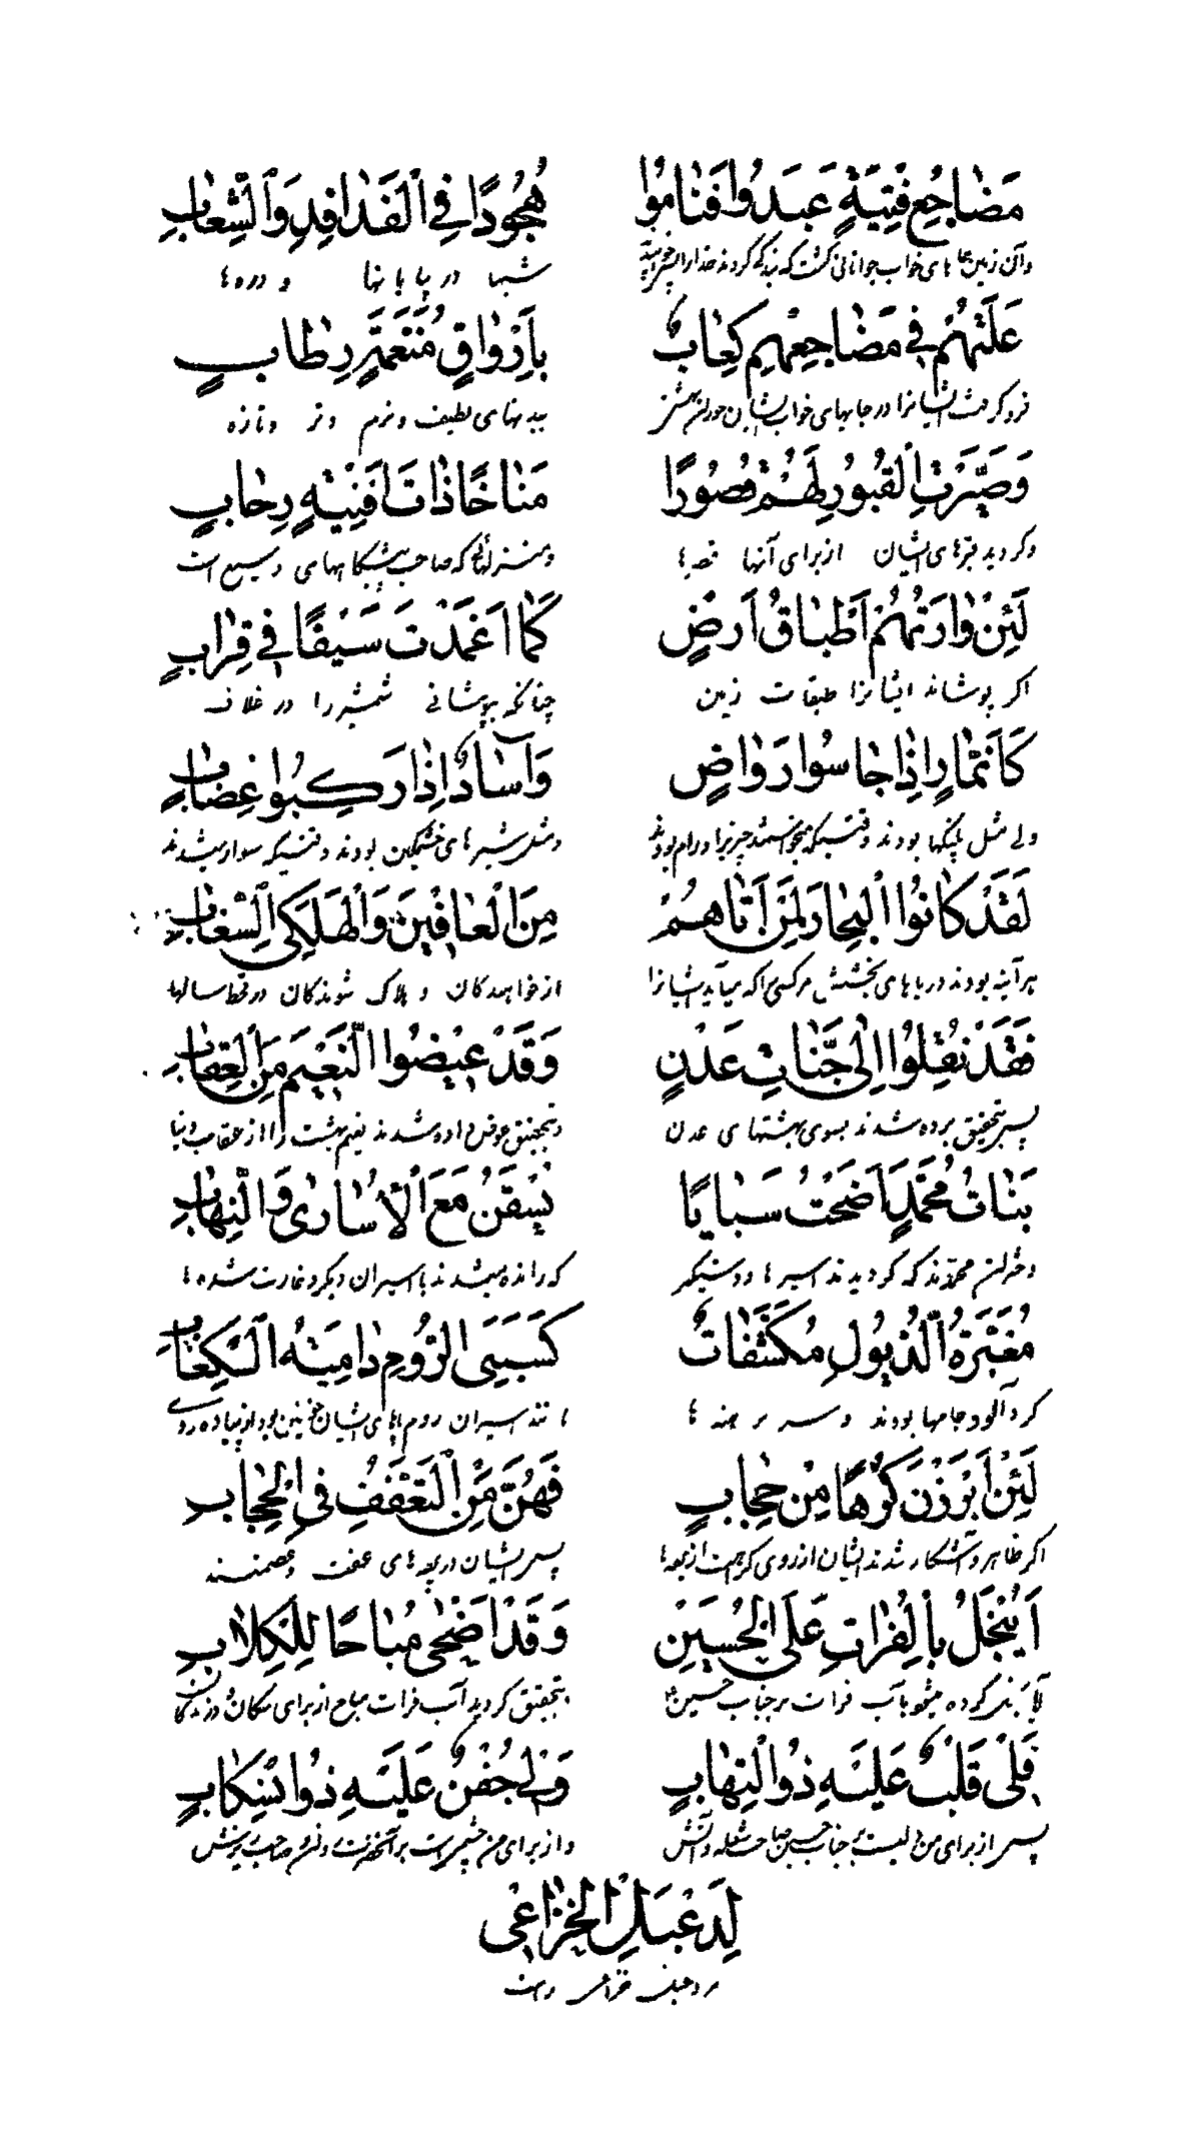 مَضاجِعُ فِتْيَةٍ عَبَدُوا فَنامُوا هُجُودًا فِي الْفَدافِدِ وَالشِّعابِ
وآن زمین های خواب جوانانی گشت که بندگی کردند خدا را شبها در بیابانها و دره ها
عَلَتْهُمْ فِي مَضاجِعِهِمْ كِعابٌ بِاَرْواقٍ مُنَعَّمَةٍ رِطابٍ
فرو گرفت ایشانرا در جایهای خواب ایشان بدنهای لطیف ونرم وتر وتازه
وَصُيِّرَتِ الْقُبُورُ لَهُمْ قُصُورًا مَناخًا ذاتَ اَفْنِيَةٍ رِحابٍ
وگردید قبرهای ایشان از برای آنها قصرها که صاحب پیشگاههای وسیع است
لَئِنْ وارَتْهُمْ اَطْباقُ اَرْضٍ كَما اَغْمَدْتَ سَيْفًا فِي قِرابٍ
اگر پوشاند ایشانرا طبقات زمین چنانکه بپوشانی شمشیر را در غلاف
كَاَنْمارٍ اِذا جاسُوا رَواضٍ وَآسادٌ اِذا رَكِبُوا غِضابٍ
ولی مثل پلنگها بودند وقتیکه ومثل شیرهای خشمگین بودند وقتیکه سوار میشدند
لَقَدْ كانُوا الْبِحارَ لِمَنْ اَتاهُمْ مِنَ الْعافِينَ وَالْهَلْكَى السِّغابِ
هر آینه بودند دریاهای بخشش هر کسی را که میآید ایشانرا از خواهندگان و هلاک شوندگان در قحط سالها
فَقَدْ نُقِلُوا اِلى جَنّاتِ عَدْنٍ وَقَدْ عِيضُوا النَّعِيمَ مِنَ الْعِقابِ
پس بتحقیق برده شدند بسوی بهشتهای عدن وبتحقیق عوض داده شدند نعیم بهشت را از عقاب دنیا
بَناتُ مُحَمَّدٍ اَضْحَتْ سَبايا يُسَقْنَ مَعَ الْاُسارى وَالنِّهابِ
دختران محمدند که گردیدند اسیرها که رانده میشدند با اسیران دیگر وغارت شده ها
مُغَبَّرَةُ الذُّيُولِ مُكَشَّفاتٌ كَسَبْيِ الرُّومِ دامِيَةُ الْكِعابِ
گرد آلود جامها بودند و سر برهنه ها مانند اسیران روم پاهای ایشان خونین بود از پیاده روی
لَئِنْ اَبْرَزْنَ كُرْهًا مِنْ حِجابٍ فَهُنَّ مِنَ التَّعَفُّفِ فِي الْحِجابِ
اگر ظاهر وآشکار شدند ایشان از روی کراهت از پرده ها پس ایشان در پرده های عفت وعصمتند
اَيُبْخَلُ بِالْفُراتِ عَلَى الْحُسَيْنِ وَقَدْ اَضْحى مُباحًا لِلْكِلابِ
آیا بخل کرده میشود بآب فرات بر جناب حسین بتحقیق گردید آب فرات مباح از برای سگان
فَلِي قَلْبٌ عَلَيْهِ ذُو الْتِهابٍ وَلِي جَفْنٌ عَلَيْهِ ذُو انْسِكابٍ
پس از برای من دلیست بر جناب حسین صاحب شعله وآتش واز برای من چشمی است بر آنحضرت صاحب ریزش
لِدِعْبِلِ الْخُزاعِي